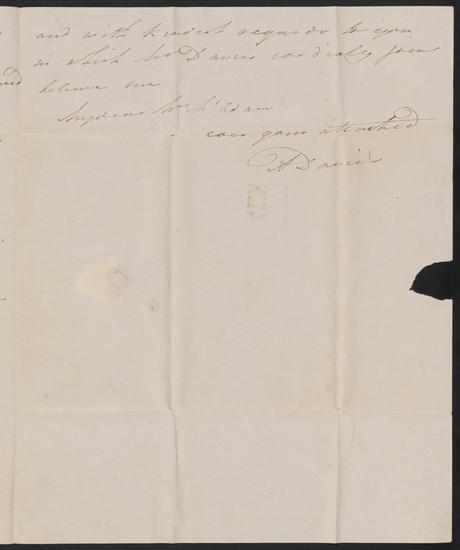 and with kindest regards to you
in which Mr Davies cordially joins
believe me
My dear Mrs McAdam
ever yours attached
A Davies